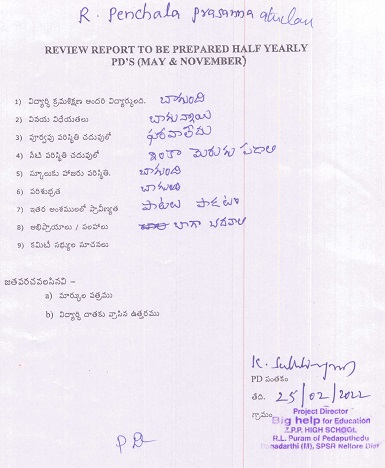 R. Penchala prasanna
REVIEW REPORT TO BE PREPARED HALF YEARLY
PD'S (MAY & NOVEMBER)
1) విద్యార్థి క్రమశిక్షణ అందరి విద్యార్థులంది. బాగుంది
2) వినయ విధేయతలు బాగున్నాయి
3) పూర్వపు పరిస్థితి చదువులో ఫరవాలేదు
4) నేటి పరిస్థితి చదువులో ఇంకా మెరుగు పడాలి
5) స్కూలుకు హాజరు పరిస్థితి. బాగుంది
6) పరిశుభ్రత బాగుంది
7) ఇతర అంశములలో ప్రావీణ్యత పాటలు పాడటం
8) అభిప్రాయాలు / సలహాలు బాగా చదవాలి
9) కమిటీ సభ్యుల సూచనలు
జతపరచవలసినవి -
a) మార్కుల పత్రము
b) విద్యార్థి దాతకు వ్రాసిన ఉత్తరము
PD సంతకం
తేది. 25/02/2022
గ్రామం
Project Director
Big help for Education
Z.P.P. HIGH SCHOOL
R.L. Puram of Pedaputhedu
(M), SPSR Nellore Dist